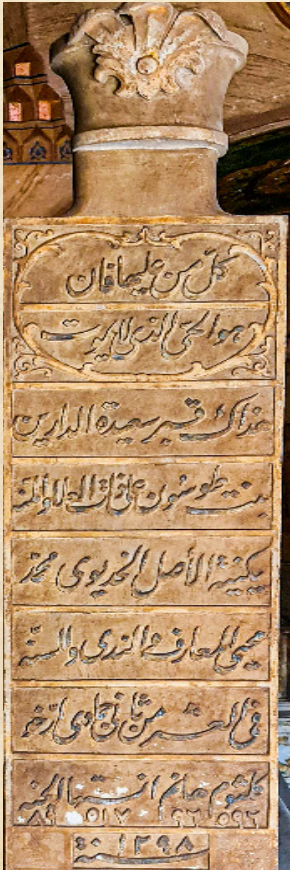 كل من عليها فان
وهو الحي الذي لا يموت
هذاك قبر سعيدة الدارين
بنت طوسون العلا والمنه
الأصل الخديوي محمد
محيي المعارف والندى والسنّه
في العشر من ثاني جمادى أرّخه
كلثوم هانم انستها الجنه
٥٩٦ ٩٦ ٥١٧ ٨٩
سنة ١٢٩٨